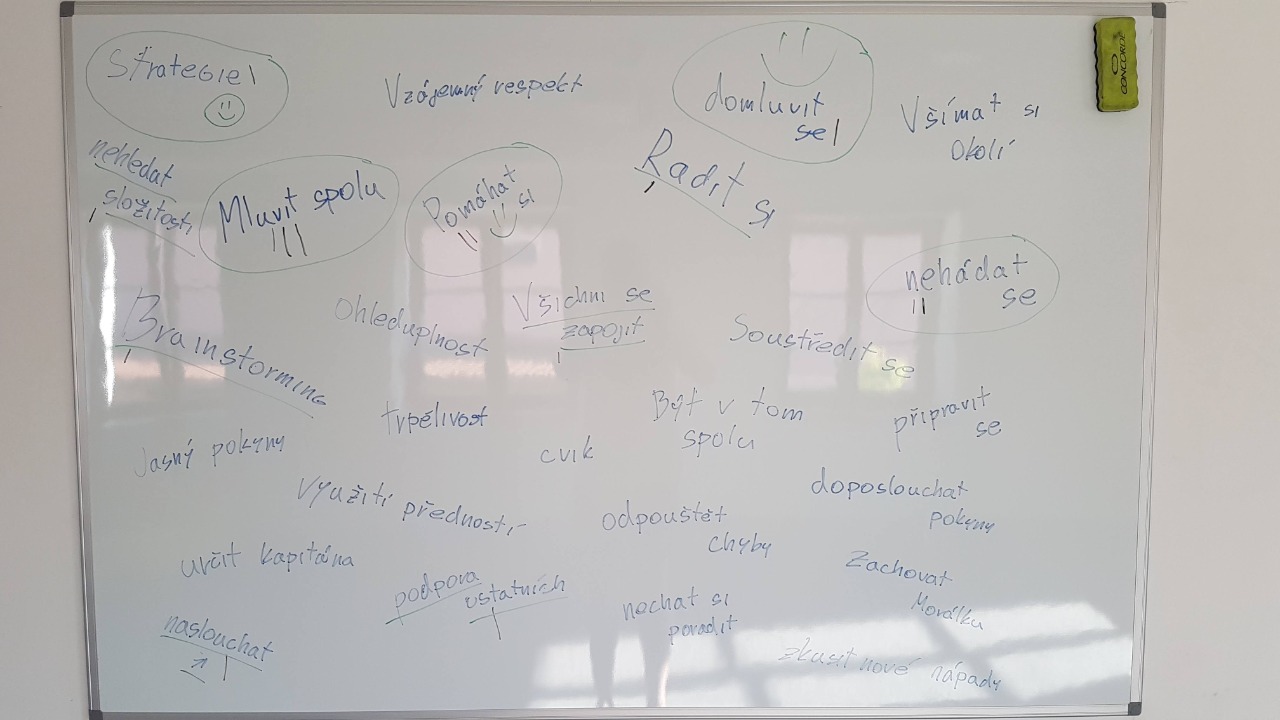 Strategie!
Vzájemný respekt
domluvit
se!
Všímat si
okolí
CONCORDE
nehledat
složitosti
Mluvit spolu
Pomáhat
si
Radit si
nehádat
se
Brainstorming
Ohleduplnost
Všichni se
zapojit
Soustředit se
trpělivost
Být v tom
spolu
připravit
se
Jasný pokyny
cvik
Využití předností
doposlouchat
pokyny
odpouštět
chyby
určit kapitána
podpora
ostatních
Zachovat
Morálku
nechat si
poradit
naslouchat
zkusit nové nápady